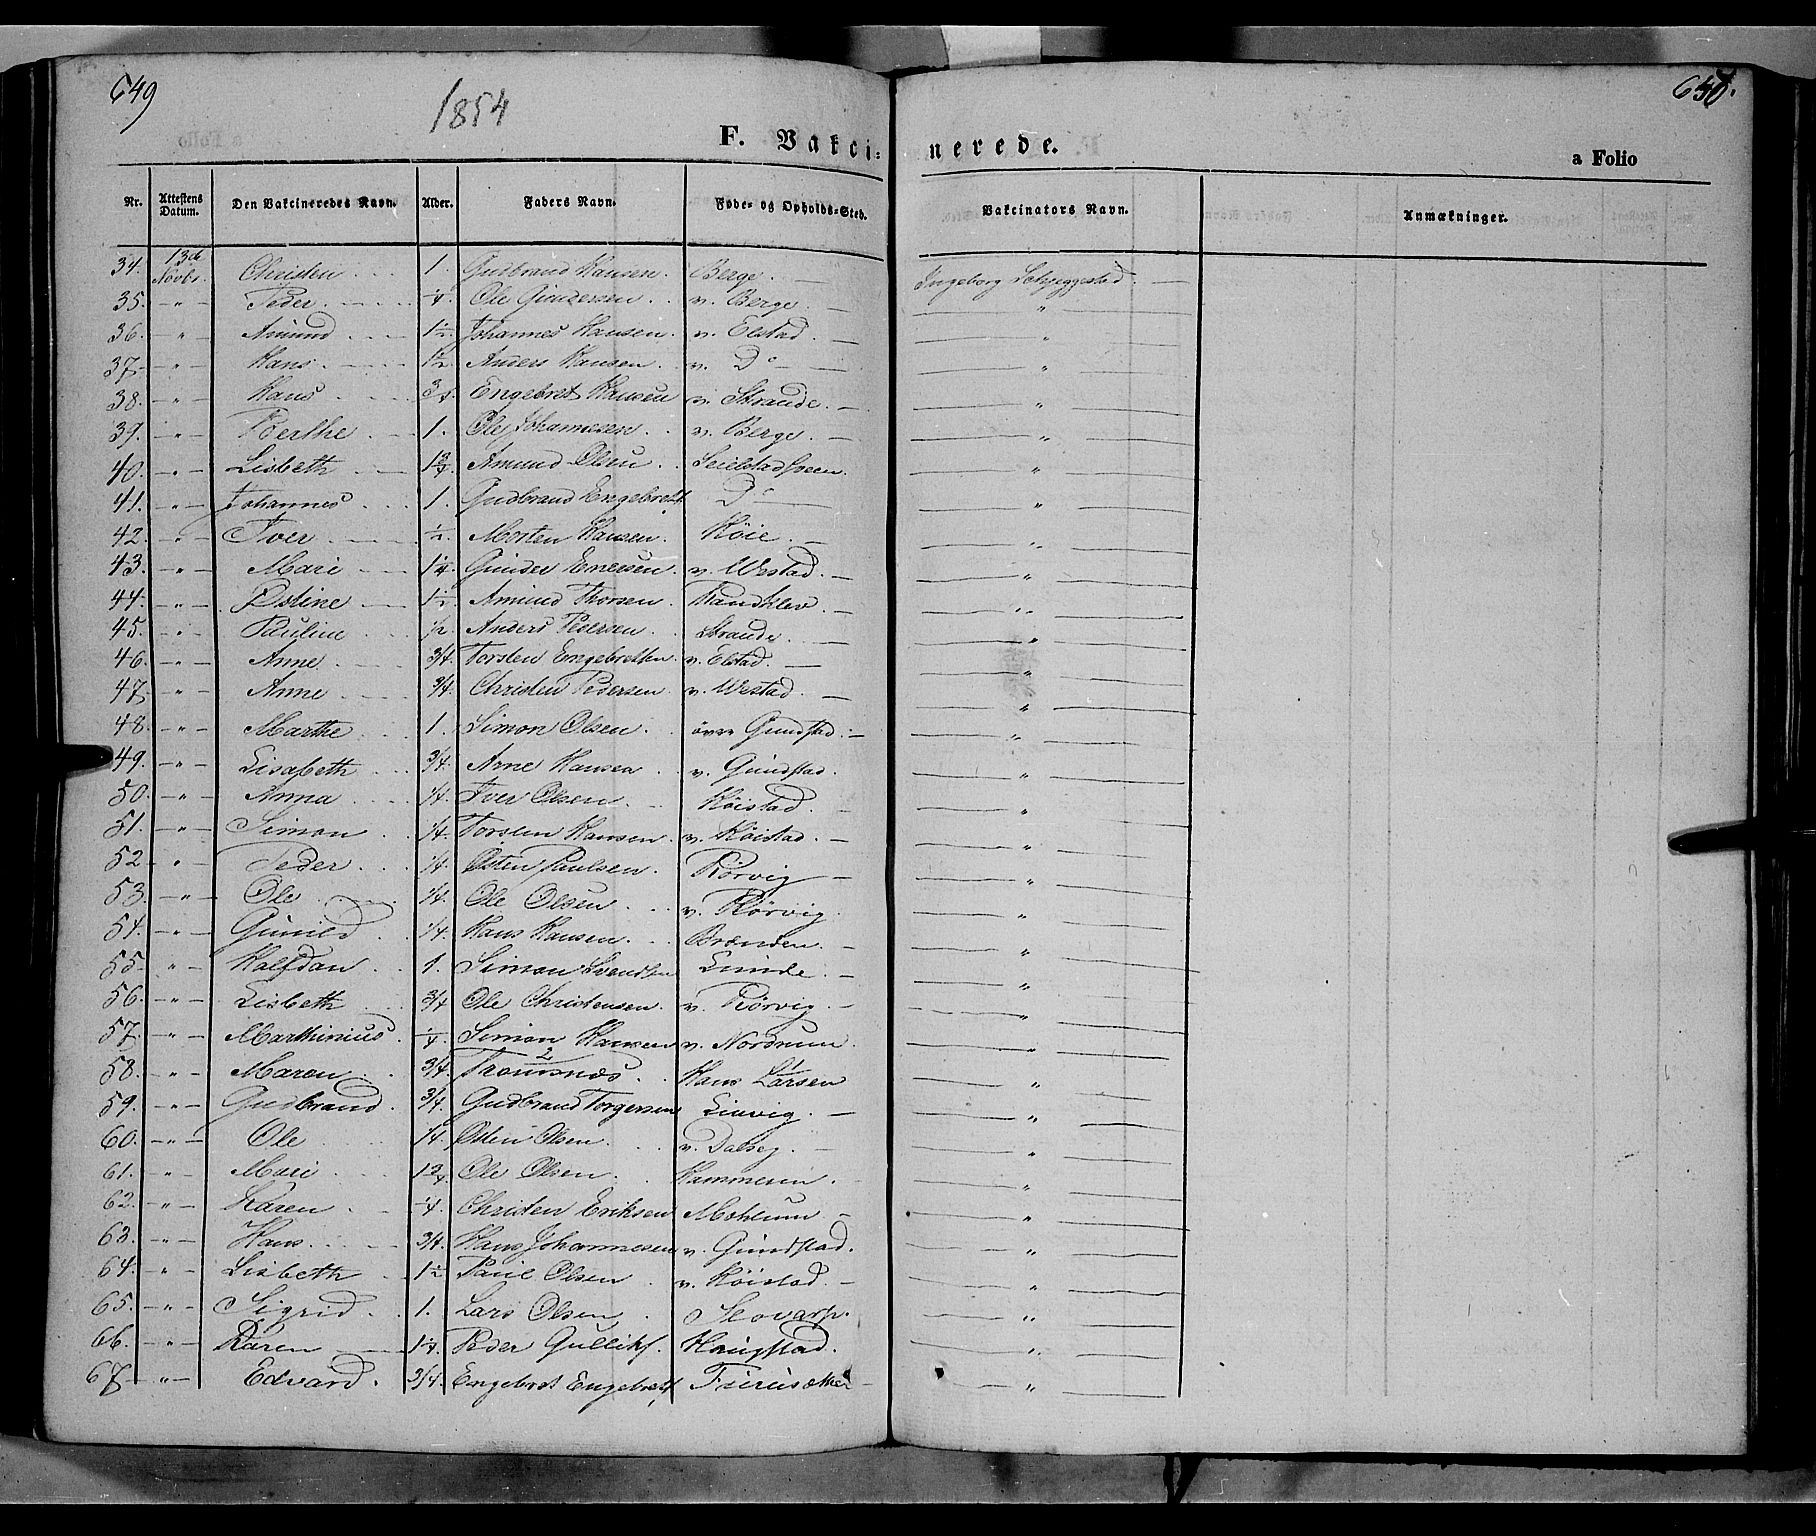 649
1854
650.
F. Vakcinerede.
a Folio
Nr. Attestens Datum. Den Vakcineredes Navn. Alder. Faders Navn. Føde- og Opholds-Sted. Vakcinators Navn. Anmærkninger.
34. 13de Novbr. Christen 1. Gudbrand Hansen. Berge. Ingeborg Schjeggestad.
35. " Peder 1/4 Ole Gundersen v. Berge "
36. " Amund 1 1/2. Johannes Hansen. v. Elstad. "
37. " Hans 1/2. Anders Hansen v. Do "
38. " Hans 3/4. Engebret Hansen v. Strande. "
39. " Berthe 1. Ole Johannesen v. Berge "
40. " Lisbeth 1 3/4 Amund Olsen Leielstadsveen. "
41. " Johannes 1. Gudbrand Engebrets. Do "
42. " Iver 1/2. Morten Hansen. Höie. "
43. " Mari 1 1/4 Gunder Enersen v. Westad. "
44. " Østine 1 1/2. Amund Thorsen. Randklev. "
45. " Pauline 1/2. Anders Pedersen Strande. "
46. " Anne 3/4. Torsten Engebretsen. v. Elstad. "
47. " Anne 3/4. Christen Pedersen v. Westad. "
48. " Marthe 1. Simon Olsen övre Gundstad. "
49. " Lisabeth 3/4. Arne Hansen v. Gundstad. "
50. " Anna 1/4. Iver Olsen Höistad. "
51. " Simon 1/4. Torsten Hansen v. Höistad. "
52. " Peder 1/4. Østen Paulsen. Rörvig "
53. " Ole 1/4. Ole Olsen v. Rörvig. "
54. " Gunild 1/4. Hans Hansen. Brænden. "
55. " Halfdan 1. Simon Svendsen Lunde. "
56. " Lisbeth 3/4 Ole Christensen. v. Rörvig. "
57. " Marthinius 1/4 Simon Hansen v. Nordrum. "
58. " Maren 3/4. 2 Tromsnæs. 1 Hans Larsen "
59. " Gudbrand. 3/4. Gudbrand Torgersen Linvig. "
60. " Ole 1/4. Østen Olsen. v. Dalseg. "
61. " Mari 1 3/4. Ole Olsen Hammeren "
62. " Karen 1/4. Christen Eriksen Mohrum "
63. " Hans 3/4. Hans Johannesen v. Gundstad. "
64. " Lisbeth 1 1/2 Paul Olsen v. Höistad. "
65. " Sigrid. 1. Lars Olsen Skovarp. "
66. " Karen 1 1/4. Peder Gulliks. Haugstad. "
67. " Edvard. 3/4. Engebret Engebrets. Furusætter "